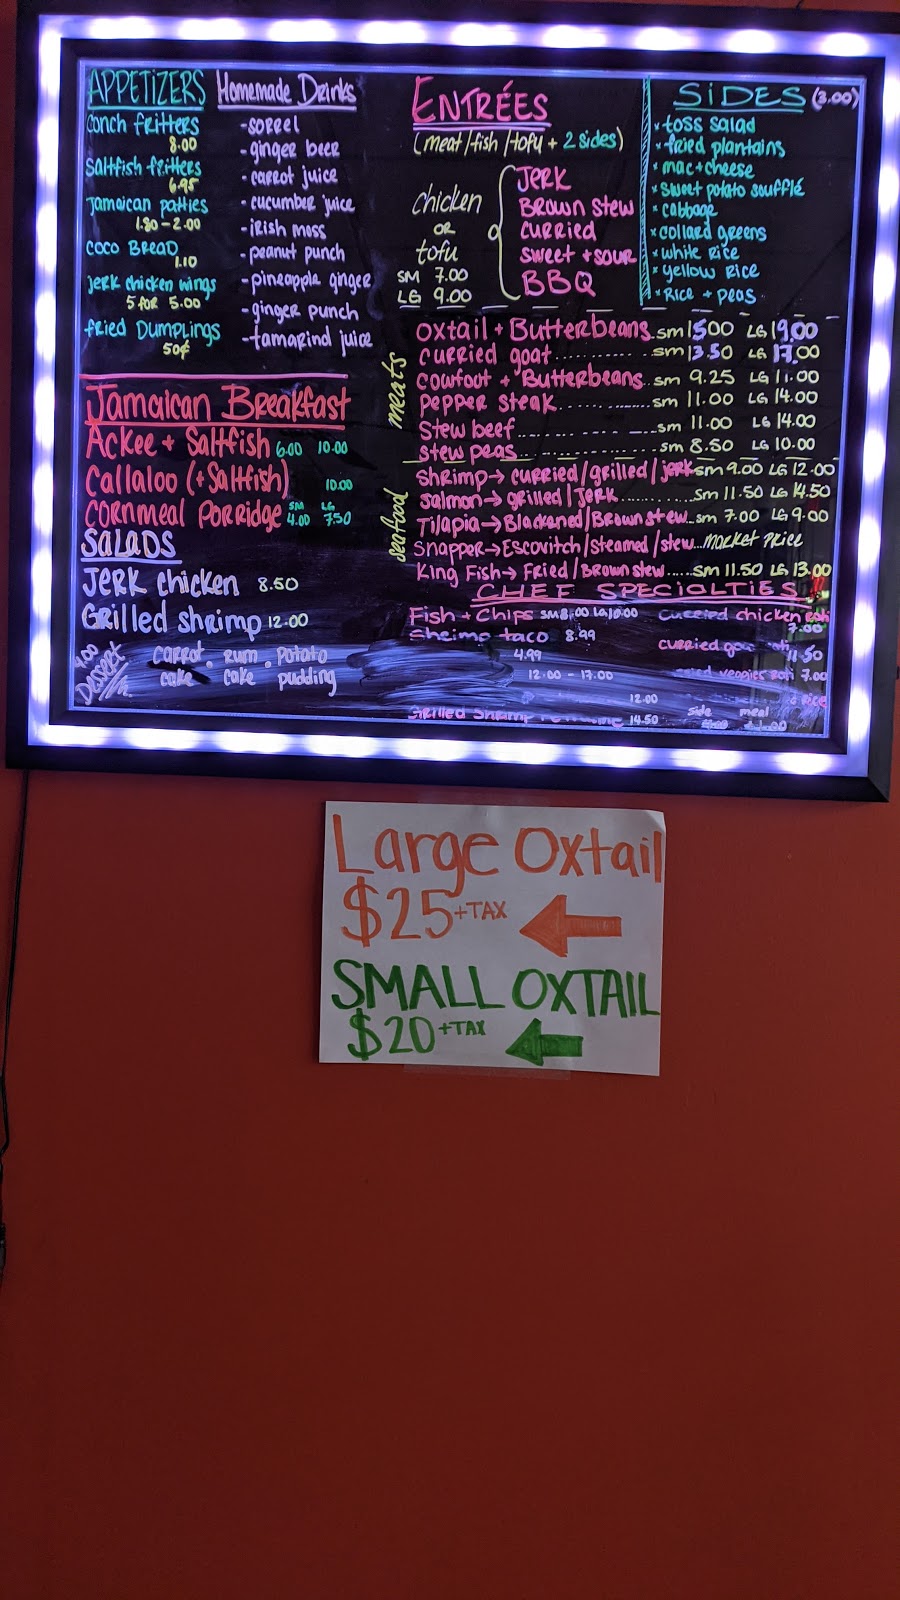 APPETIZERS
conch fritters
8.00
saltfish fritters
6.95
Jamaican patties
1.80-2.00
COCO BREAD
1.10
jerk chicken wings
5 for 5.00
fried Dumplings
50¢
Homemade Drinks
-sorrel
-ginger beer
-carrot juice
-cucumber juice
-irish moss
-peanut punch
-pineapple ginger
-ginger punch
-tamarind juice
Jamaican Breakfast
Ackee + Saltfish 6.00 10.00
Callaloo (+Saltfish) 10.00
SM LG
Cornmeal Porridge 4.00 7.50
SALADS
Jerk chicken 8.50
Grilled shrimp 12.00
4.00 Dessert
carrot cake . rum cake . potato pudding
ENTRÉES
(meat/fish/tofu + 2 sides)
chicken
OR
tofu
SM 7.00
LG 9.00
JERK
BROWN STEW
CURRIED
SWEET + SOUR
BBQ
SIDES (3.00)
*toss salad
*fried plantains
*mac+cheese
*sweet potato soufflé
*cabbage
*collard greens
*white rice
*yellow rice
*Rice + peas
meats
oxtail + Butterbeans sm 15.00 LG 19.00
curried goat ........... sm 13.50 LG 17.00
cowfoot + Butterbeans sm 9.25 LG 11.00
pepper steak........... sm 11.00 LG 14.00
stew beef ........ sm 11.00 LG 14.00
stew peas sm 8.50 LG 10.00
seafood
Shrimp→curried/grilled/jerk sm 9.00 LG 12.00
Salmon→grilled/JERK........... sm 11.50 LG 14.50
Tilapia→Blackened/Brown stew..sm 7.00 LG 9.00
Snapper→Escovitch/steamed/stew...MARKET PRICE
King Fish→Fried/Brown stew......sm 11.50 LG 13.00
CHEF SPECIALTIES
Fish + Chips SM 8.00 LG 10.00
Shrimp taco 8.99
4.99
12.00 - 17.00
12.00
Grilled Shrimp 14.50
curried chicken Roti
7.00
curried goat roti
11.50
veggies Roti 7.00
side meal
Large Oxtail
$25 +TAX
SMALL OXTAIL
$20 +TAX